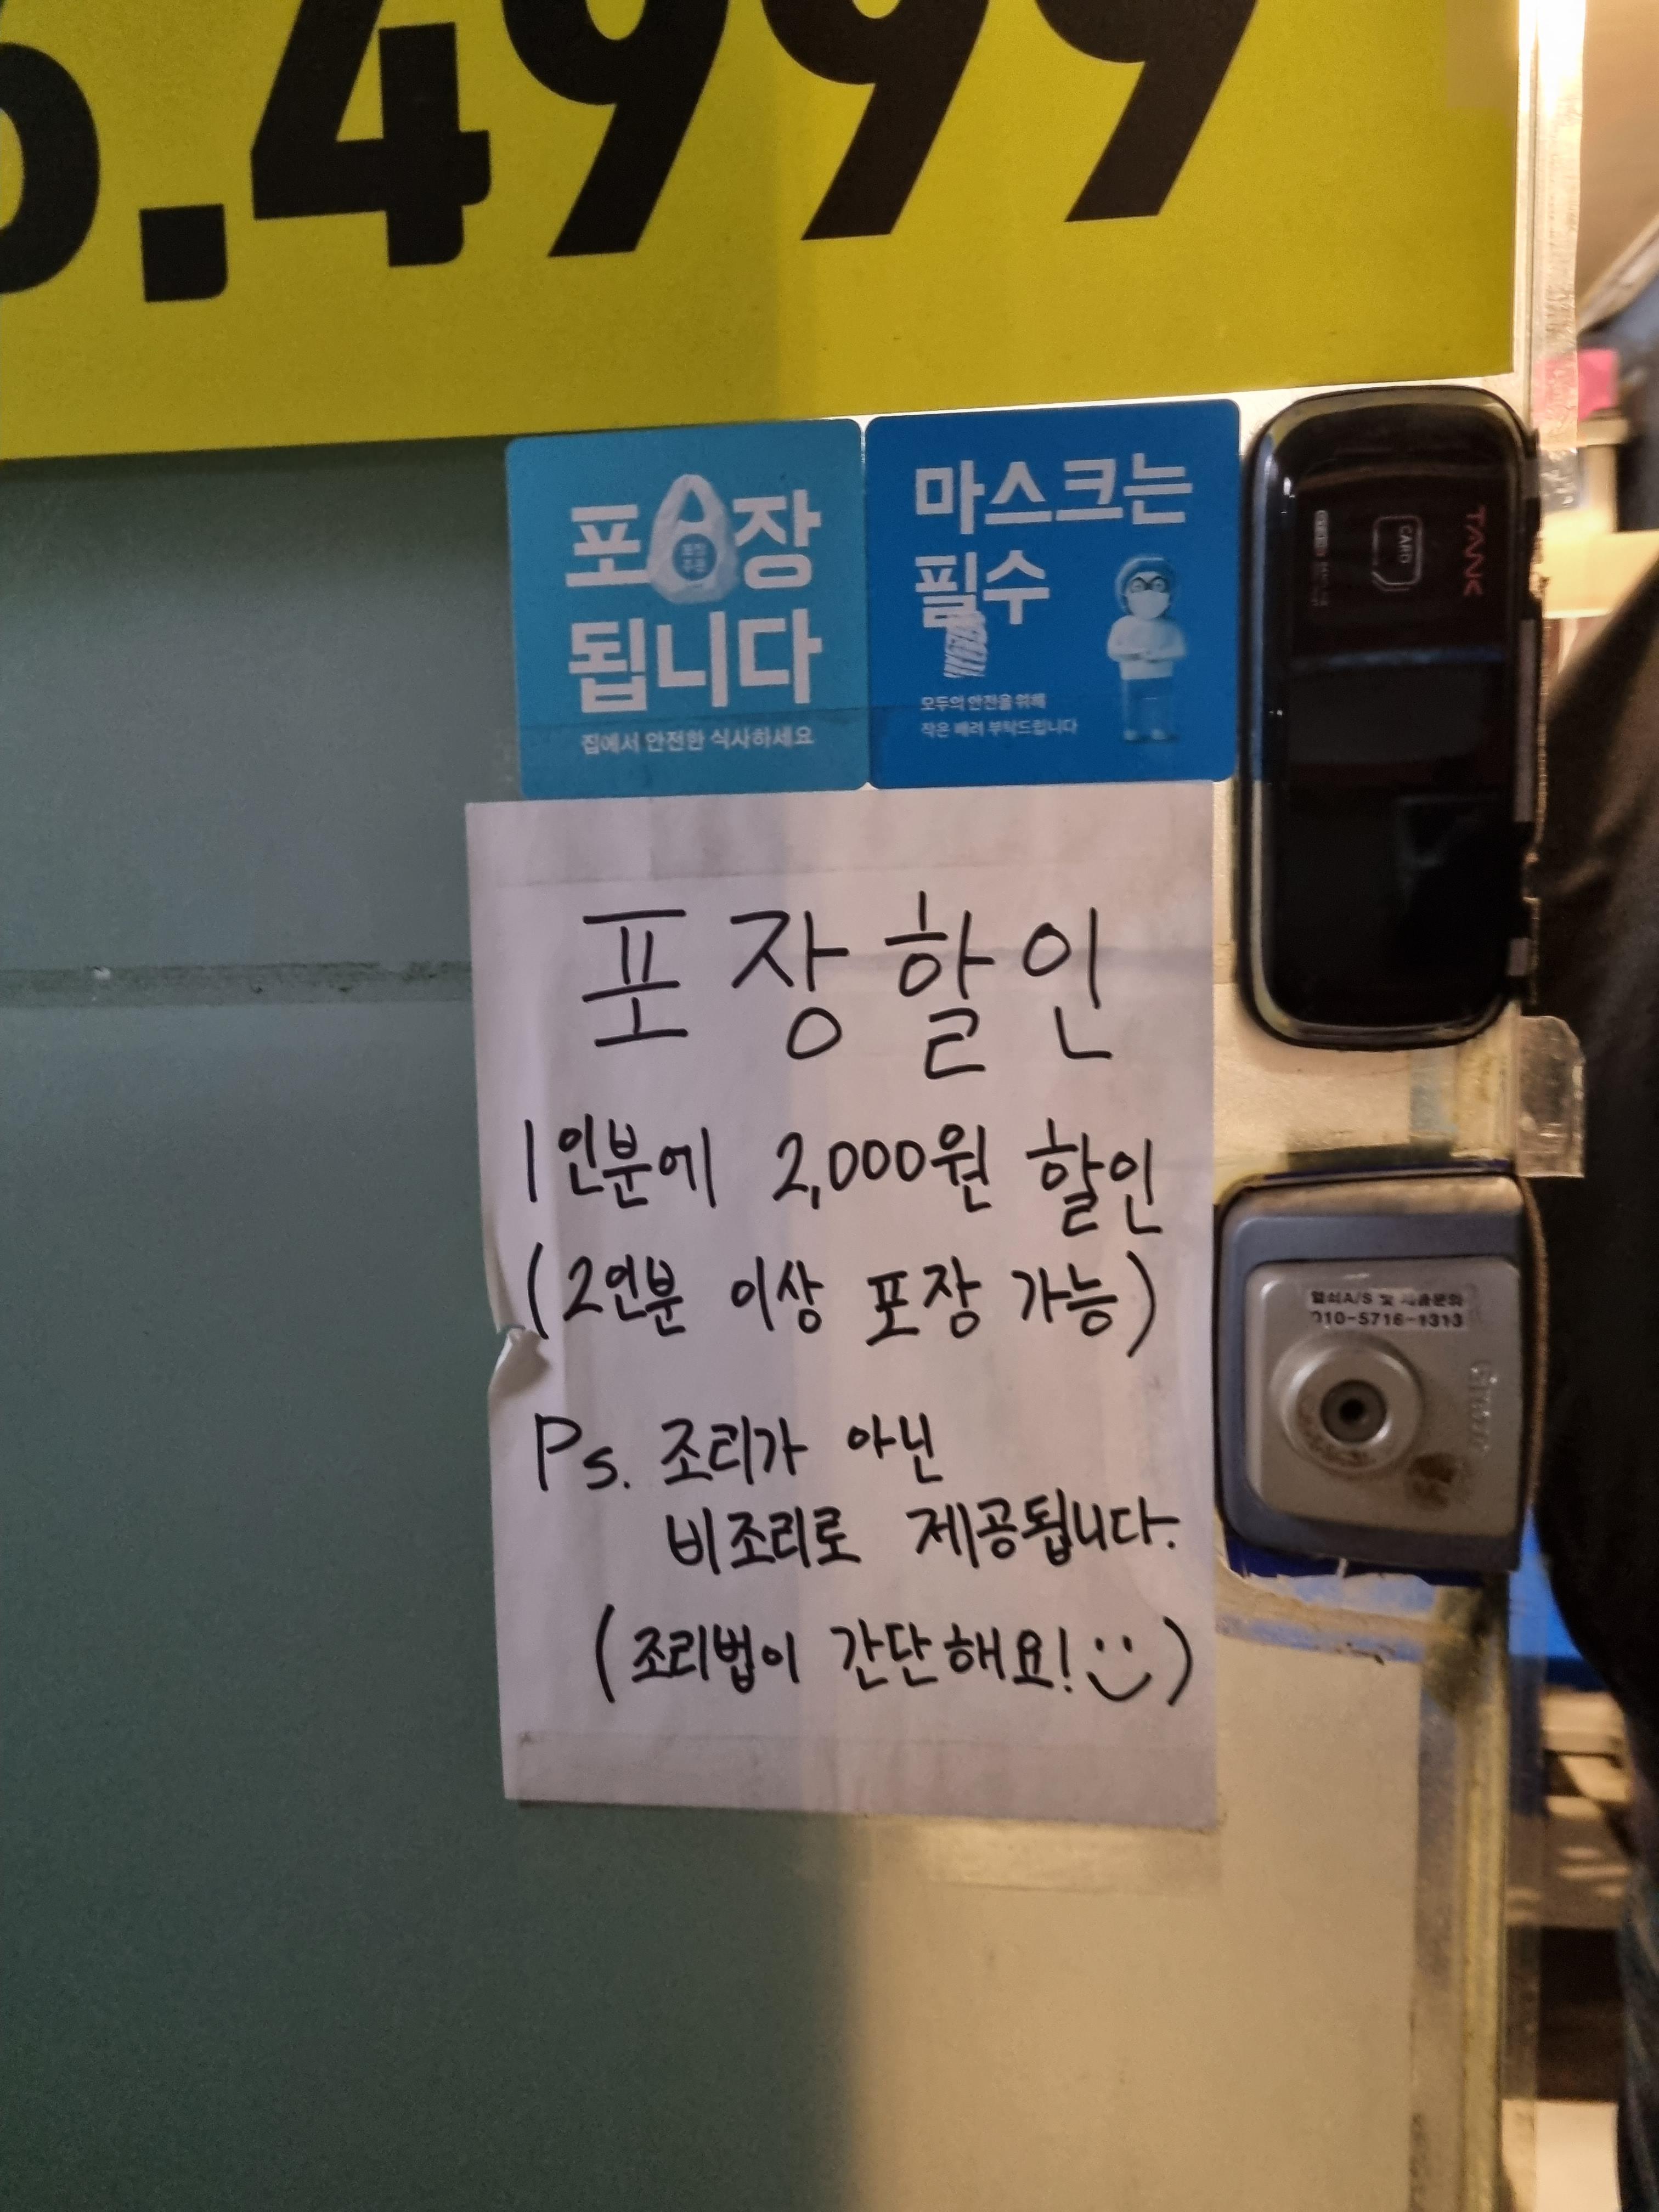 .4999
포장
됩니다
집에서 안전한 식사하세요
마스크는
필수
모두의 안전을 위해
작은 배려 부탁드립니다
TANK
CARD
포장할인
1인분에 2,000원 할인
(2인분 이상 포장 가능)
Ps. 조리가 아닌
비조리로 제공됩니다.
(조리법이 간단해요!)
열쇠A/S 및 제품문의
010-5716-1313